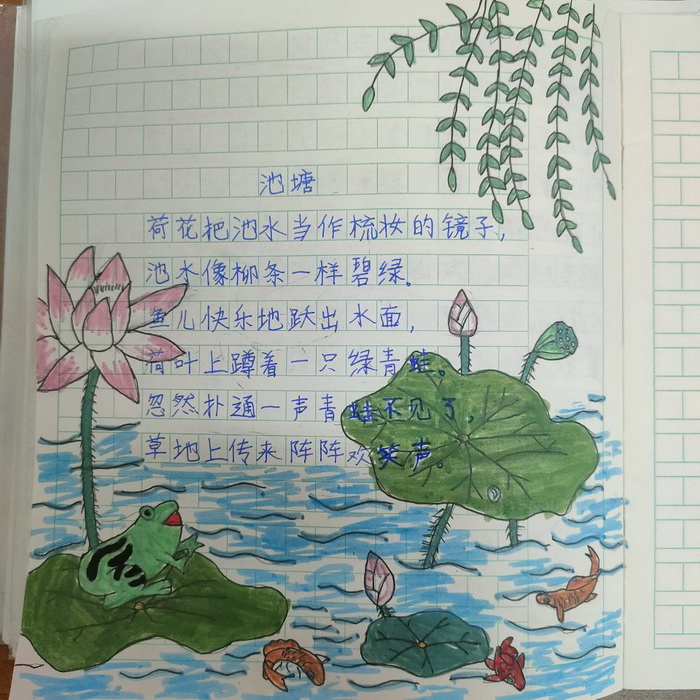 池塘
荷花把池水当作梳妆的镜子，
池水像柳条一样碧绿。
鱼儿快乐地跃出水面，
荷叶上蹲着一只绿青蛙。
忽然扑通一声青蛙不见了，
草地上传来阵阵欢笑声。